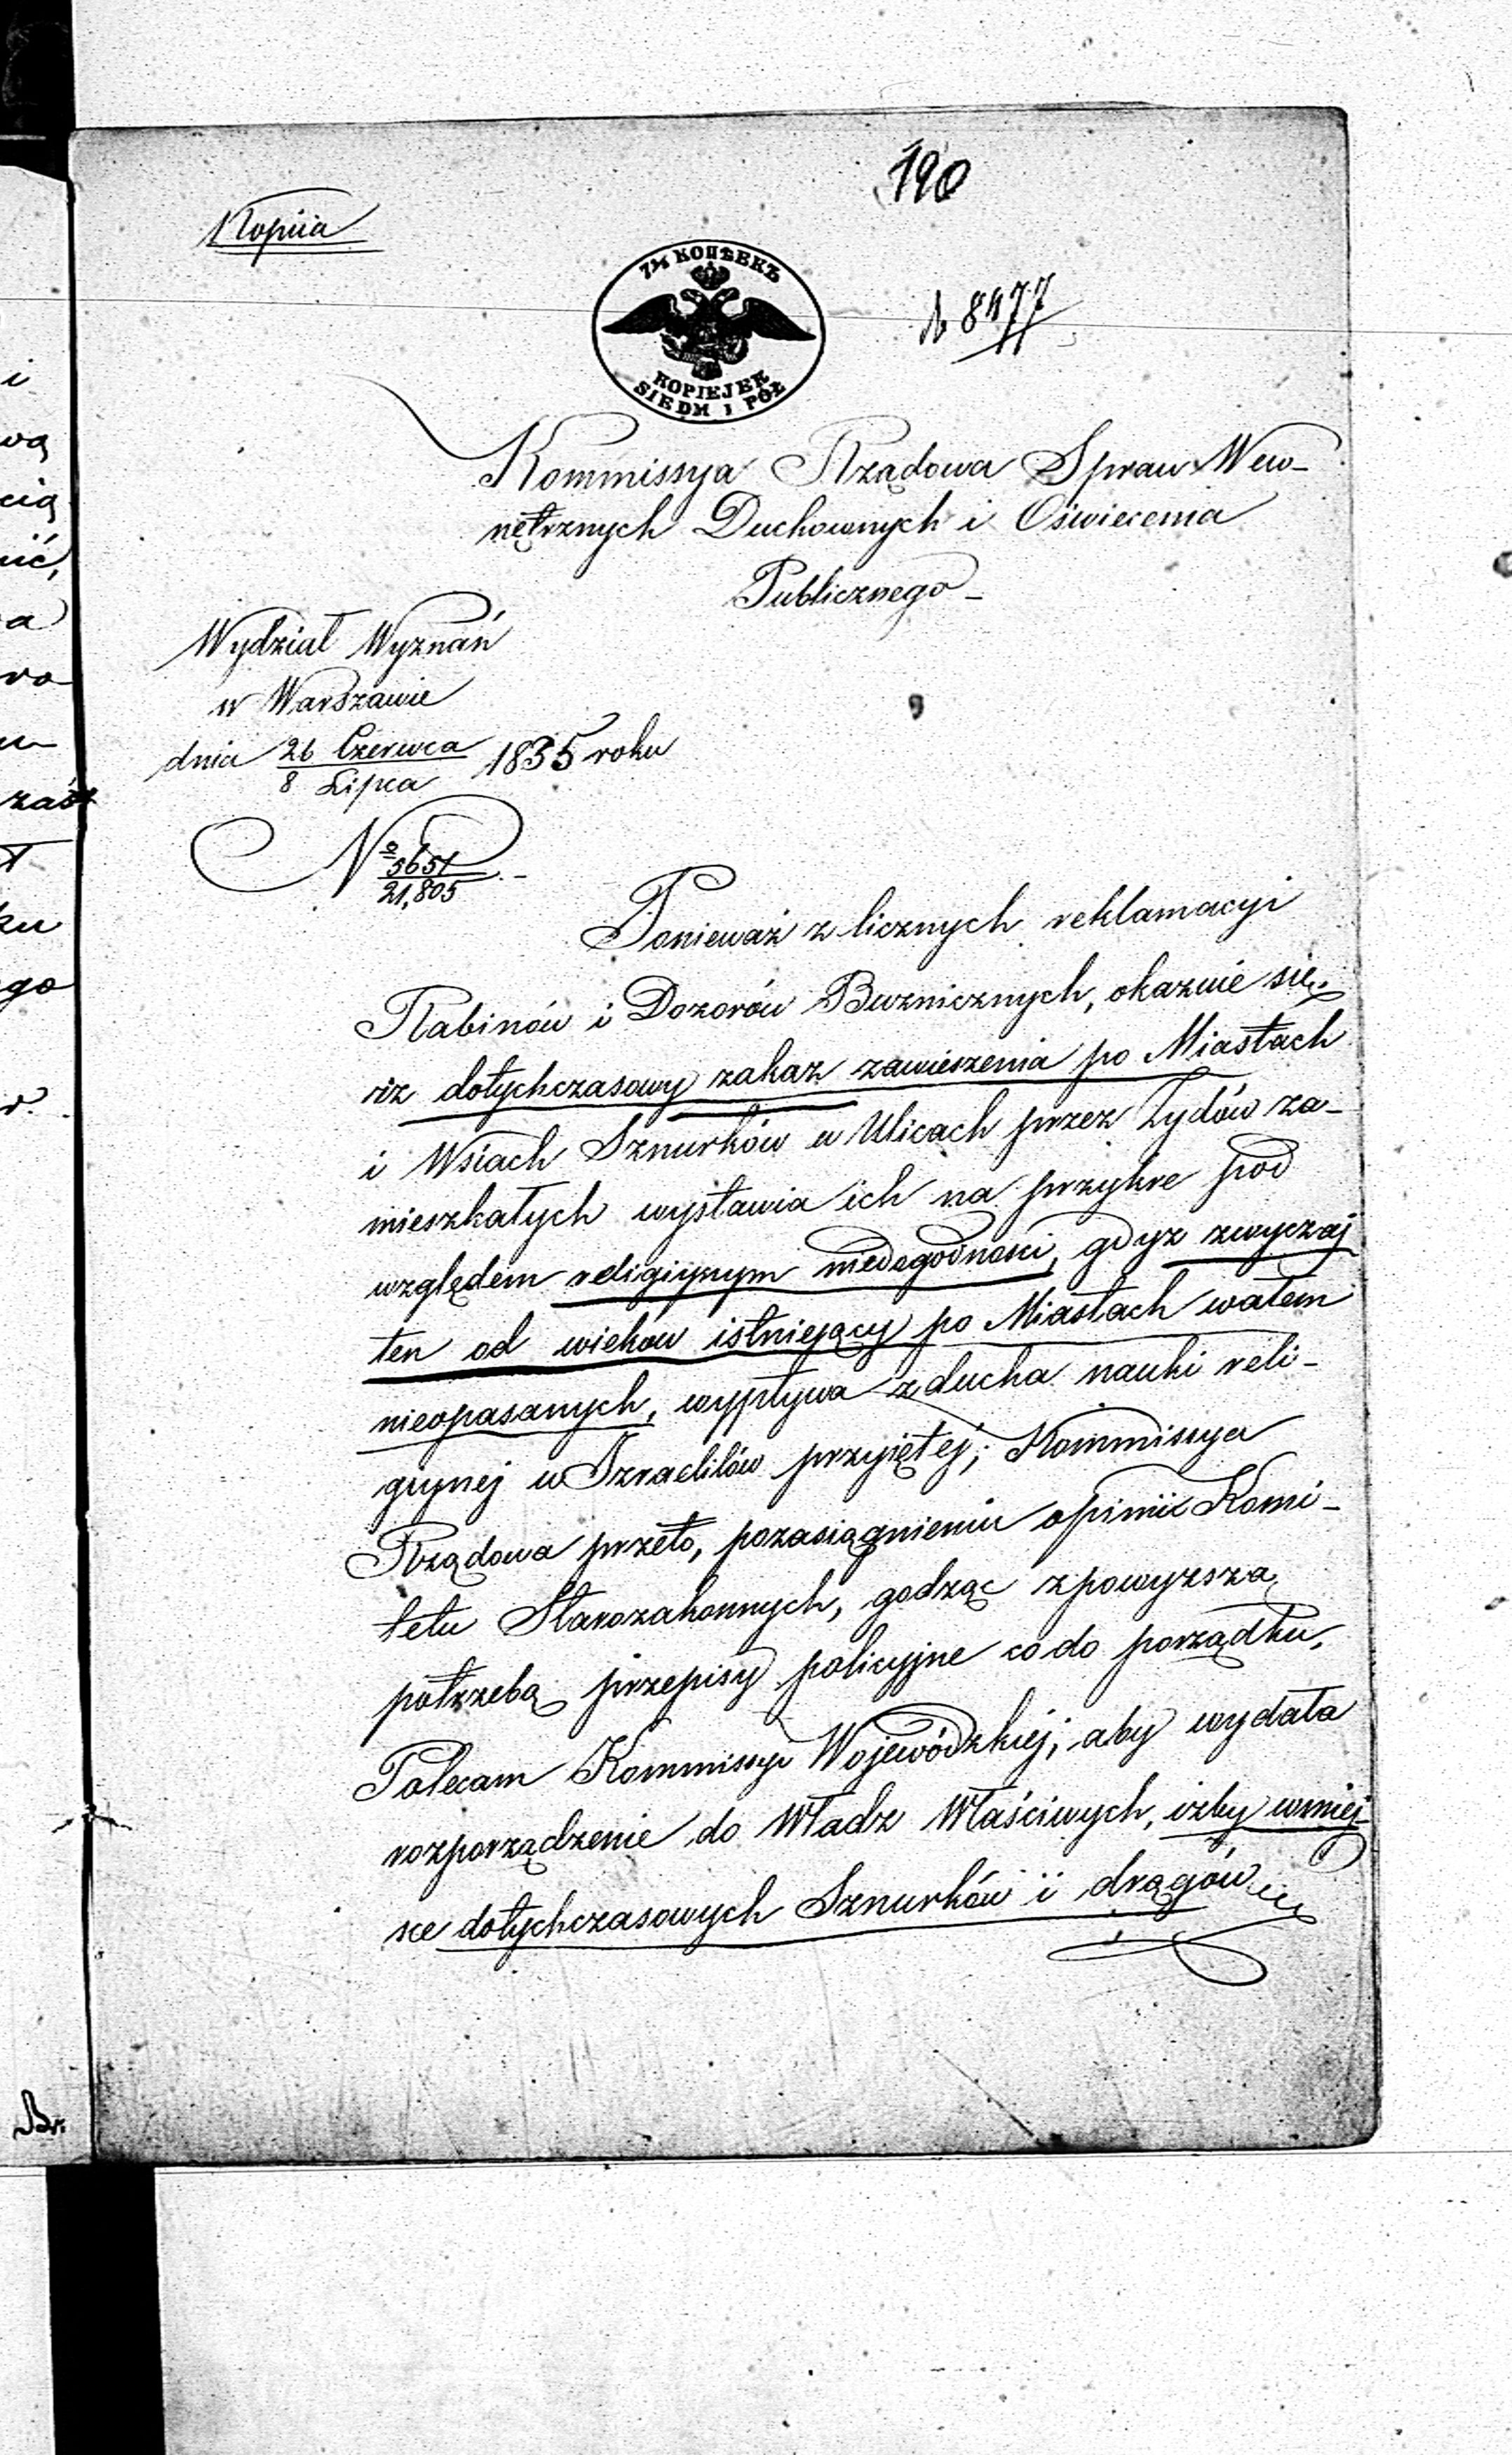 190
Kopiia
7½ КОПѢЕКЪ
KOPIEJEK
SIEDM I PÓŁ
Kommissya Rządowa Spraw Wew-
nętrznych Duchownych i Oświecenia
Publicznego -
Wydział Wyznań
w Warszawie
dnia 26 Czerwca
8 Lipca 1835 roku
No 5651
21,805
Ponieważ z licznych reklamacyi
Rabinów i Dozorów Buzniczny­ch, okazuie się,
iż dotychczasowy zakaz zawieszenia po Miastach
i Wsiach Sznurków w Ulicach przez Żydów za-
mieszkałych wystawia ich na przykre pod
względem religiynym niedogodności, gdyz zwyczaj
ten od wieków istniejący po Miastach wałem
nieopasanych, wypływa z ducha nauki reli-
giynej u Izraelitów przyiętej; Kommissya
Rządowa przeto, pozasiągnieniu opinii Komi-
tetu Starozakonnych, godząc zpowyzszą
potrzebą przepisy policyjne co do porządku,
Polecam Kommissyi Wojewódzkiéj, aby wydała
rozporządzenie do Władz Właściwych, izby wmiej-
sce dotychczasowych Sznurków i drągów
i
wą
cią
nić,
a
ro
zaś
ku
go
Br.